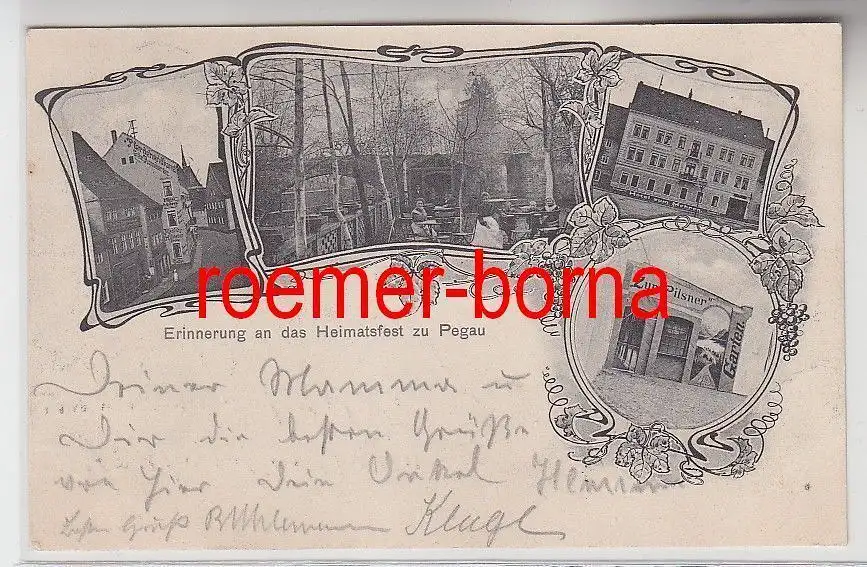 Zum Pilsner
Garten
roemer-borna
Erinnerung an das Heimatsfest zu Pegau
Deiner Mamma u
Dir die besten Grüße
von hier Dein Onkel
Gruß